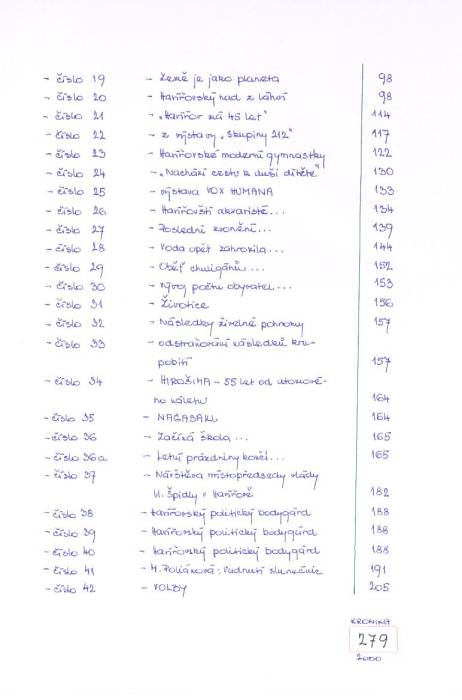 - číslo 19 - Země je jako planeta 98
- číslo 20 - Havířovský rud z láhví 98
- číslo 21 - „Havířov má 45 let" 114
- číslo 22 - z výstavy „Skupiny 212" 117
- číslo 23 - Havířovské moderní gymnastky 122
- číslo 24 - „Nachází cestu k duši dítěte" 130
- číslo 25 - výstava VOX HUMANA 133
- číslo 26 - Havířovští akvaristé... 134
- číslo 27 - Poslední zvonění... 139
- číslo 28 - Voda opět zahrozila... 144
- číslo 29 - Oběť chuligánů... 152
- číslo 30 - Vývoj počtu obyvatel... 153
- číslo 31 - Životice 156
- číslo 32 - Následky živelné pohromy 157
- číslo 33 - odstraňování následků kru-
pobití 157
- číslo 34 - HIROŠIMA - 55 let od atomové-
ho náletu 164
- číslo 35 - NAGASAKI 164
- číslo 36 - Začíná škola... 165
- číslo 36a - Letní prázdniny končí... 165
- číslo 37 - Návštěva místopředsedy vlády
Vl. Špidly v Havířově 182
- číslo 38 - Havířovský politický bodygárd 188
- číslo 39 - Havířovský politický bodygárd 188
- číslo 40 - Havířovský politický bodygárd 188
- číslo 41 - M. Poláková: Vadnutí slunečnic 191
- číslo 42 - VOLBY 205
KRONIKA
279
2000